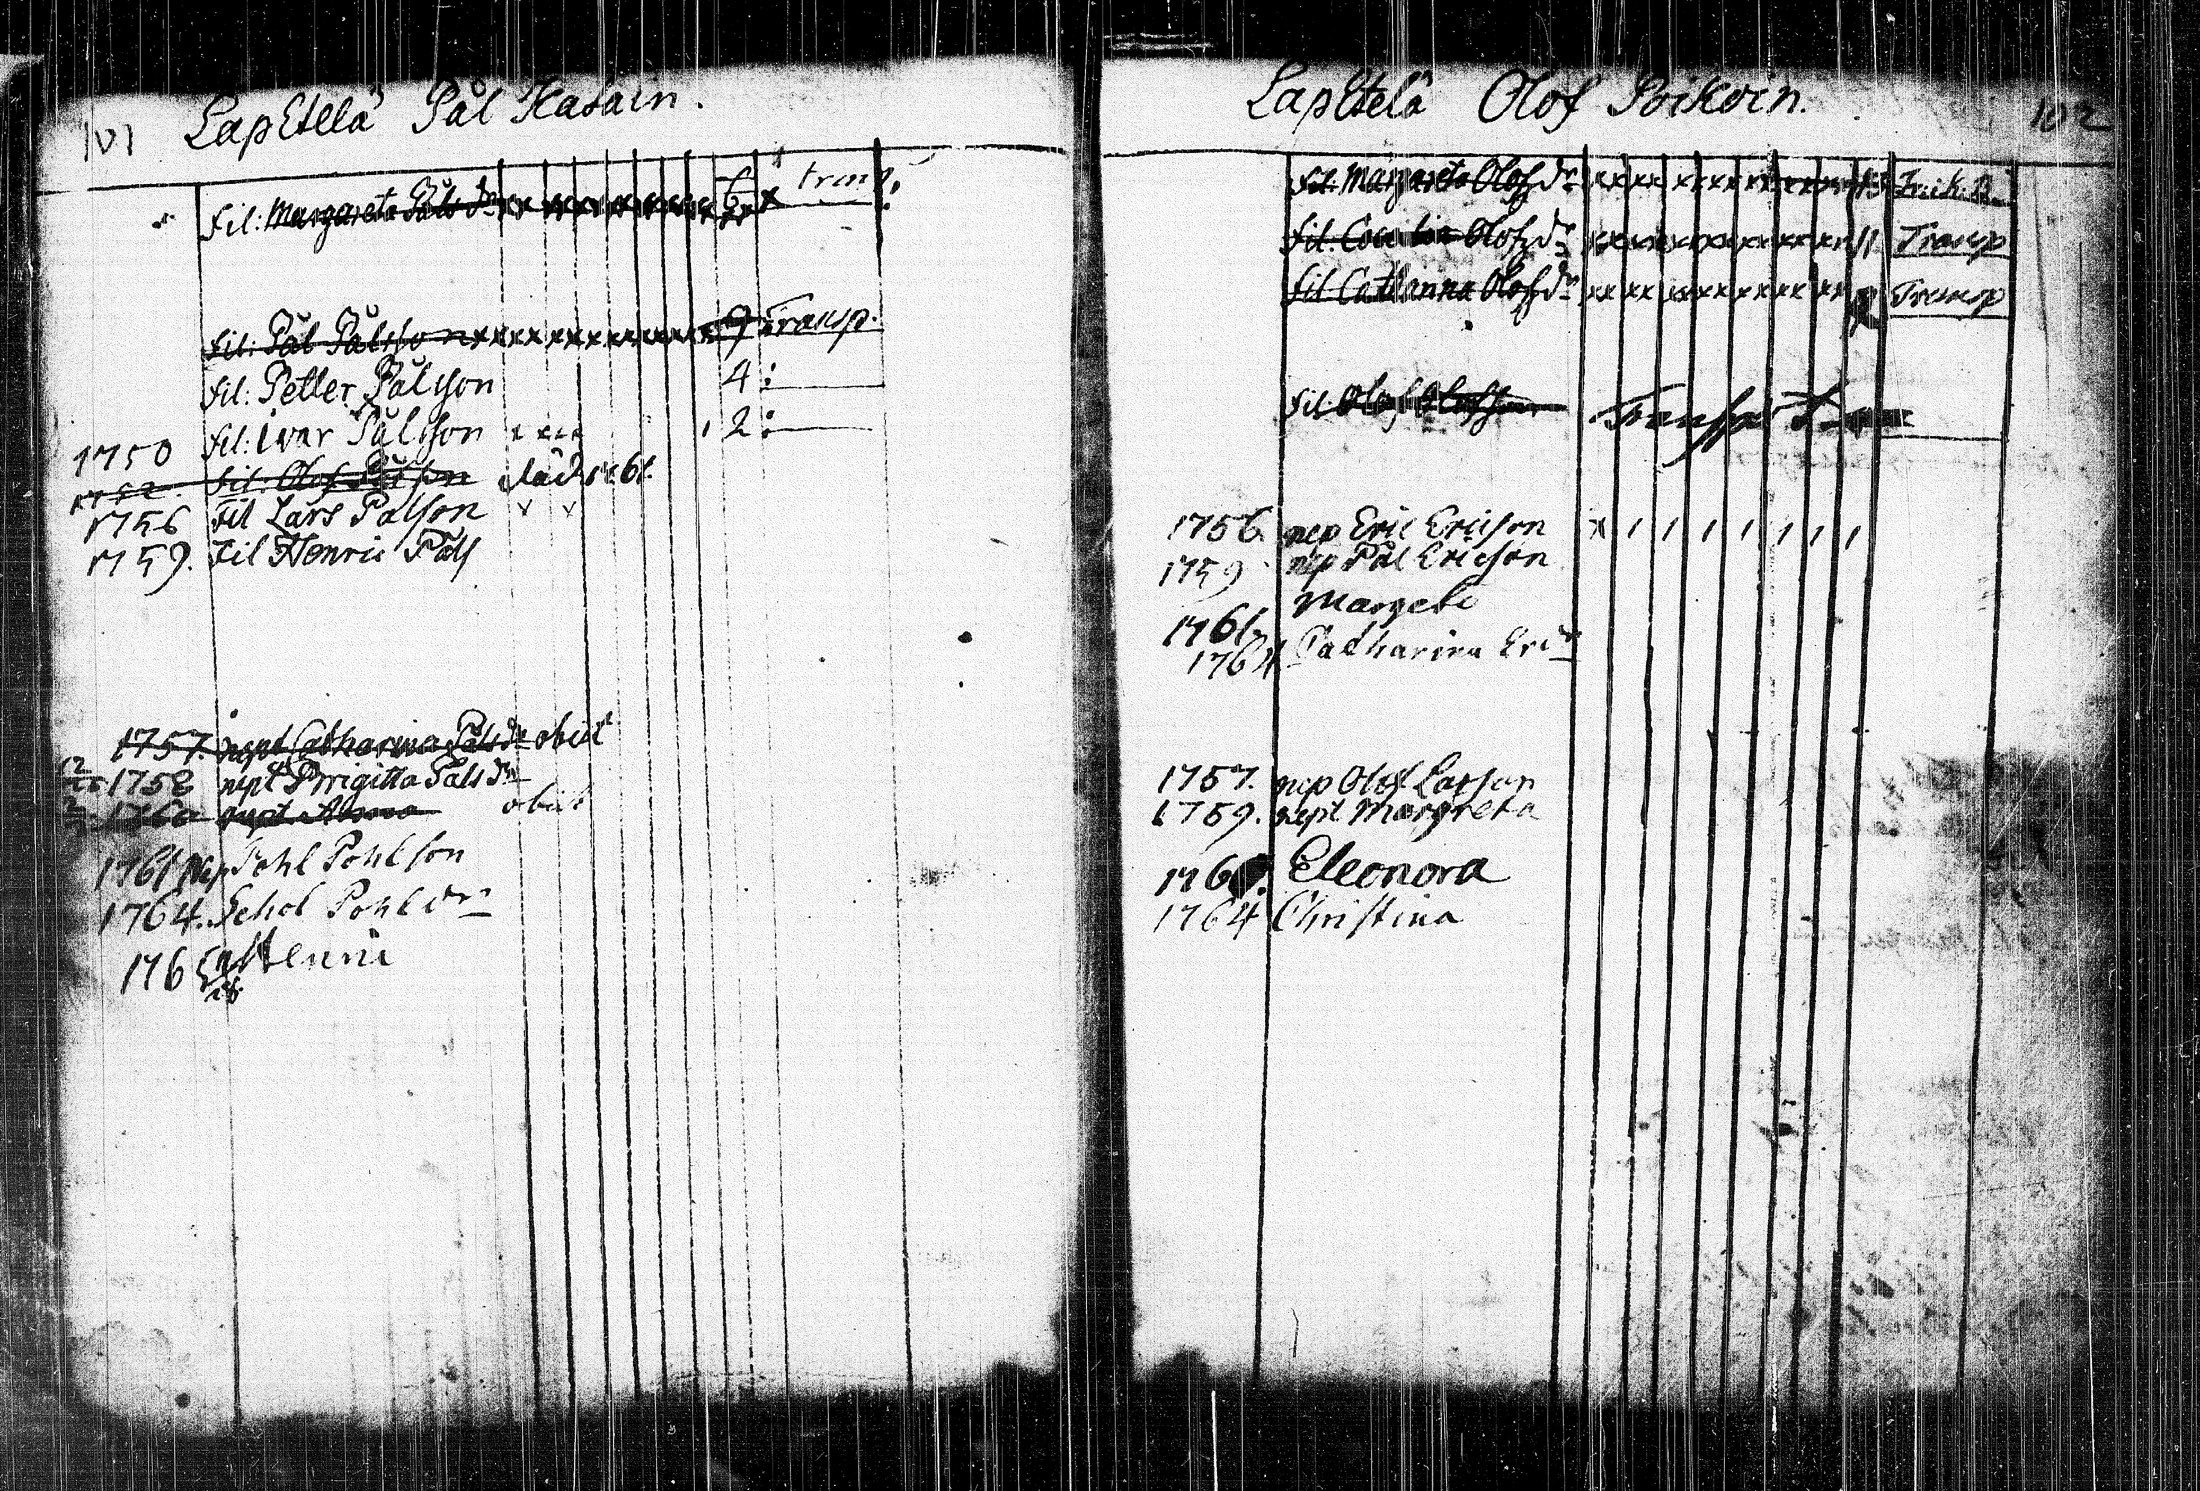 101 LapEtelä Pål Hatain.
Fil: Margareta Påls dr xx xxxxxxxxxx x transp.
Fil: Pål Pålsson xxxxxxxxxxxx 9 Transp.
Fil: Petter Pålsson 4 :
1750 Fil: Ivar Pålsson x xxx 2 :
1752. Fil: Olof Pålsson död 1761.
1756 Fil Lars Pålson v v
1759. Fil Henric Påls
1757. nept Catharina Påls dr obiit
1758 nept Brigitta Påls dr
1760 nept Anna obiit
1761 Nep Pohl Pohlson
1764. Pohl dr
176 Henric
LapEtelä Olof Poikoin. 102
Fil: Margareta Olofz dr
Fil: Olofz dr Transp
Fil: Catharina Olofz dr Transp
Fil: Olof Olofsson Transport
1756. nep Eric Ericson x 1 1 1 1 1 1 1
1759 nep Pål Ericson
1761. Margeta
1764 Catharina Eri dr
1757. nep Olof Larson
1759. nept Margreta
176 Eleonora
1764 Christina